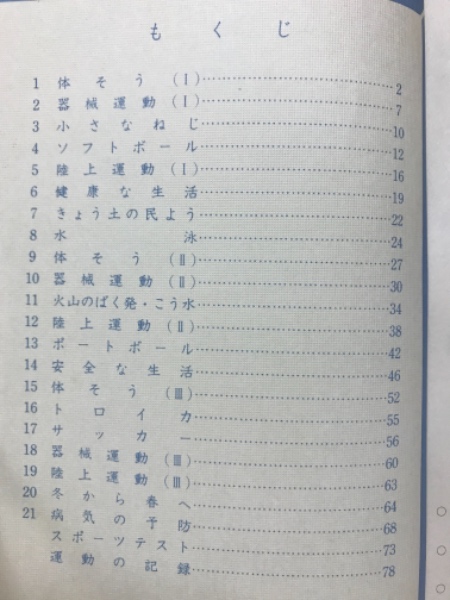 もくじ
1 体そう(Ⅰ)……2
2 器械運動(Ⅰ)……7
3 小さなねじ……10
4 ソフトボール……12
5 陸上運動(Ⅰ)……16
6 健康な生活……19
7 きょう土の民よう……22
8 水泳……24
9 体そう(Ⅱ)……27
10 器械運動(Ⅱ)……30
11 火山のばく発・こう水……34
12 陸上運動(Ⅱ)……38
13 ポートボール……42
14 安全な生活……46
15 体そう(Ⅲ)……52
16 トロイカ……55
17 サッカー……56
18 器械運動(Ⅲ)……60
19 陸上運動(Ⅲ)……63
20 冬から春へ……64
21 病気の予防……68
スポーツテスト……73
運動の記録……78